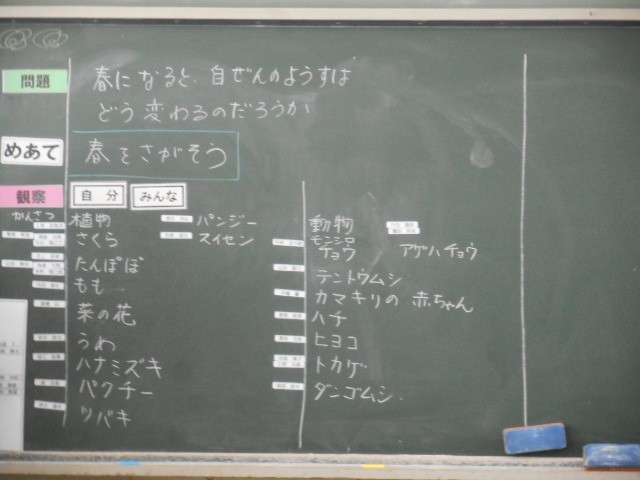 問題
春になると、自ぜんのようすは
どう変わるのだろうか
めあて
春をさがそう
観察
かんさつ
自分
みんな
植物
さくら
たんぽぽ
もも
菜の花
うわ
ハナミズキ
パクチー
ツバキ
パンジー
スイセン
動物
モンシロ
チョウ
アゲハチョウ
テントウムシ
カマキリの赤ちゃん
ハチ
ヒヨコ
トカゲ
ダンゴムシ